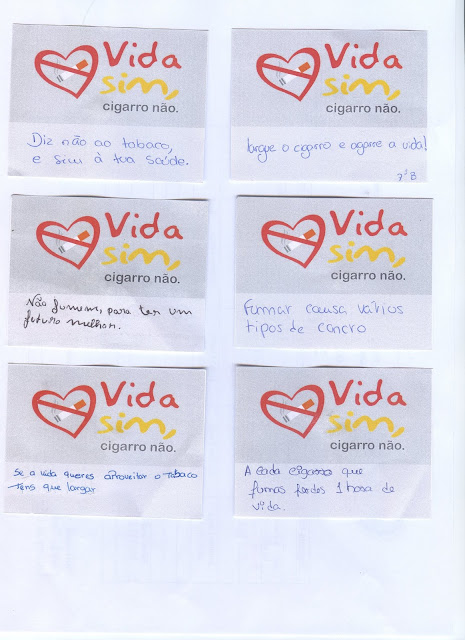 Vida
sim,
cigarro não.
Diz não ao tabaco,
e sim à tua saúde.
Vida
sim,
cigarro não.
largue o cigarro e agarre a vida!
7º B
Vida
sim,
cigarro não.
Não fumem, para ter um
futuro melhor.
Vida
sim,
cigarro não.
Fumar causa vários
tipos de cancro
Vida
sim,
cigarro não.
Se a vida queres aproveitar o tabaco
tens que largar
Vida
sim,
cigarro não.
A cada cigarro que
fumas perdes 1 hora de
vida.